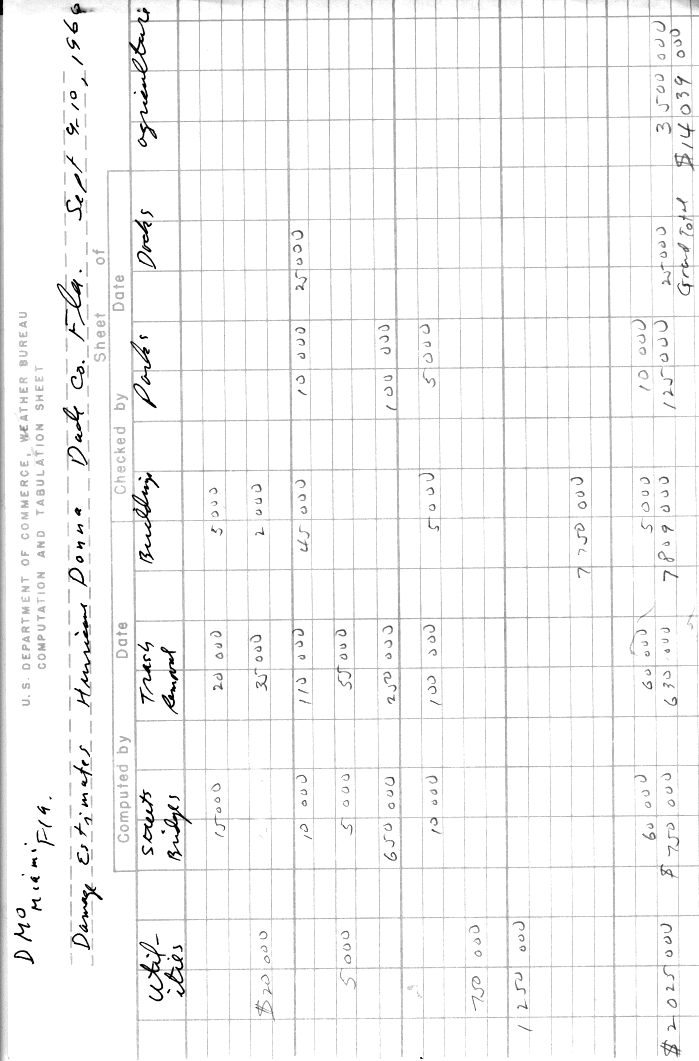 DMO
Miami
Fla.
U.S. DEPARTMENT OF COMMERCE, WEATHER BUREAU
COMPUTATION AND TABULATION SHEET
Damage Estimates Hurricane Donna Dade Co. Fla. Sept 9-10, 1960
Sheet of
Computed by Date Checked by Date
Util-ities Streets Bridges Trash Removal Buildings Parks Docks agriculture
15000 20 000 5 000
$20 000 35000 2 000
10 000 110 000 45 000 10 000 25000
5000 5 000 55 000
650 000 250 000 100 000
10 000 100 000 5 000 5 000
750 000
1 250 000
7 750 000
60 000 60 000 5 000 10 000
$2 025 000 $750 000 630 000 7 809 000 125 000 25000 3 500 000
Grand Total $14 039 000